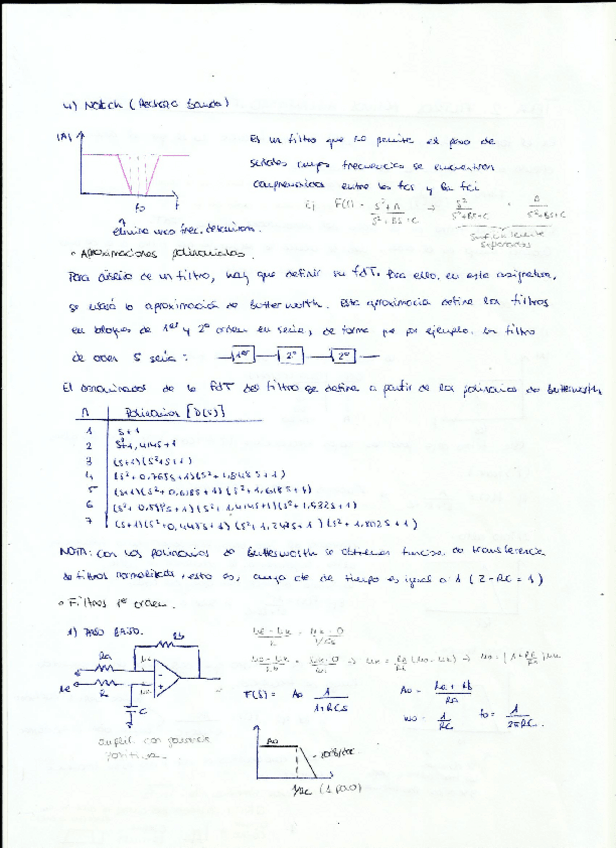 4) Notch (Rechaza banda)
|A|
fo
f
Es un filtro que no permite el paso de
señales cuyas frecuencias se encuentran
comprendidas entre las fcs y las fci
F(s) = s²+A / s²+Bs+C → s² / s²+Bs+C + A / s²+Bs+C
suficientemente
separados
elimina una frec. determin.
• Aproximaciones polinomiales.
Para diseño de un filtro, hay que definir su fdT. Para ello, en esta asignatura,
se usará la aproximación de Butterworth. Esta aproximación define los filtros
en bloques de 1er y 2º orden en serie, de forma que por ejemplo, un filtro
de orden 5 sería: 1er 2º 2º
El denominador de la FdT del filtro se define a partir de los polinomios de Butterworth
n Polinomios [D(s)]
1 s+1
2 s²+1,414s+1
3 (s+1)(s²+s+1)
4 (s²+0,765s+1)(s²+1,848s+1)
5 (s+1)(s²+0,618s+1)(s²+1,618s+1)
6 (s²+0,518s+1)(s²+1,414s+1)(s²+1,932s+1)
7 (s+1)(s²+0,445s+1)(s²+1,24
s+1)(s²+1,802s+1)
NOTA: con los polinomios de Butterworth se obtienen función de transferencia
de filtros normalizada, esto es, cuya cte de tiempo es igual a 1 (Z=RC=1)
• Filtros 1er orden.
1) PASO BAJO.
Rb
Ra
R
C
F(s) = Ao 1 / 1+RCs
Ao = Ra + Rb / Ra
wo = 1 / RC
fo = 1 / 2πRC
amplif. con ganancia
positiva.
Ao
1/RC (1 polo)